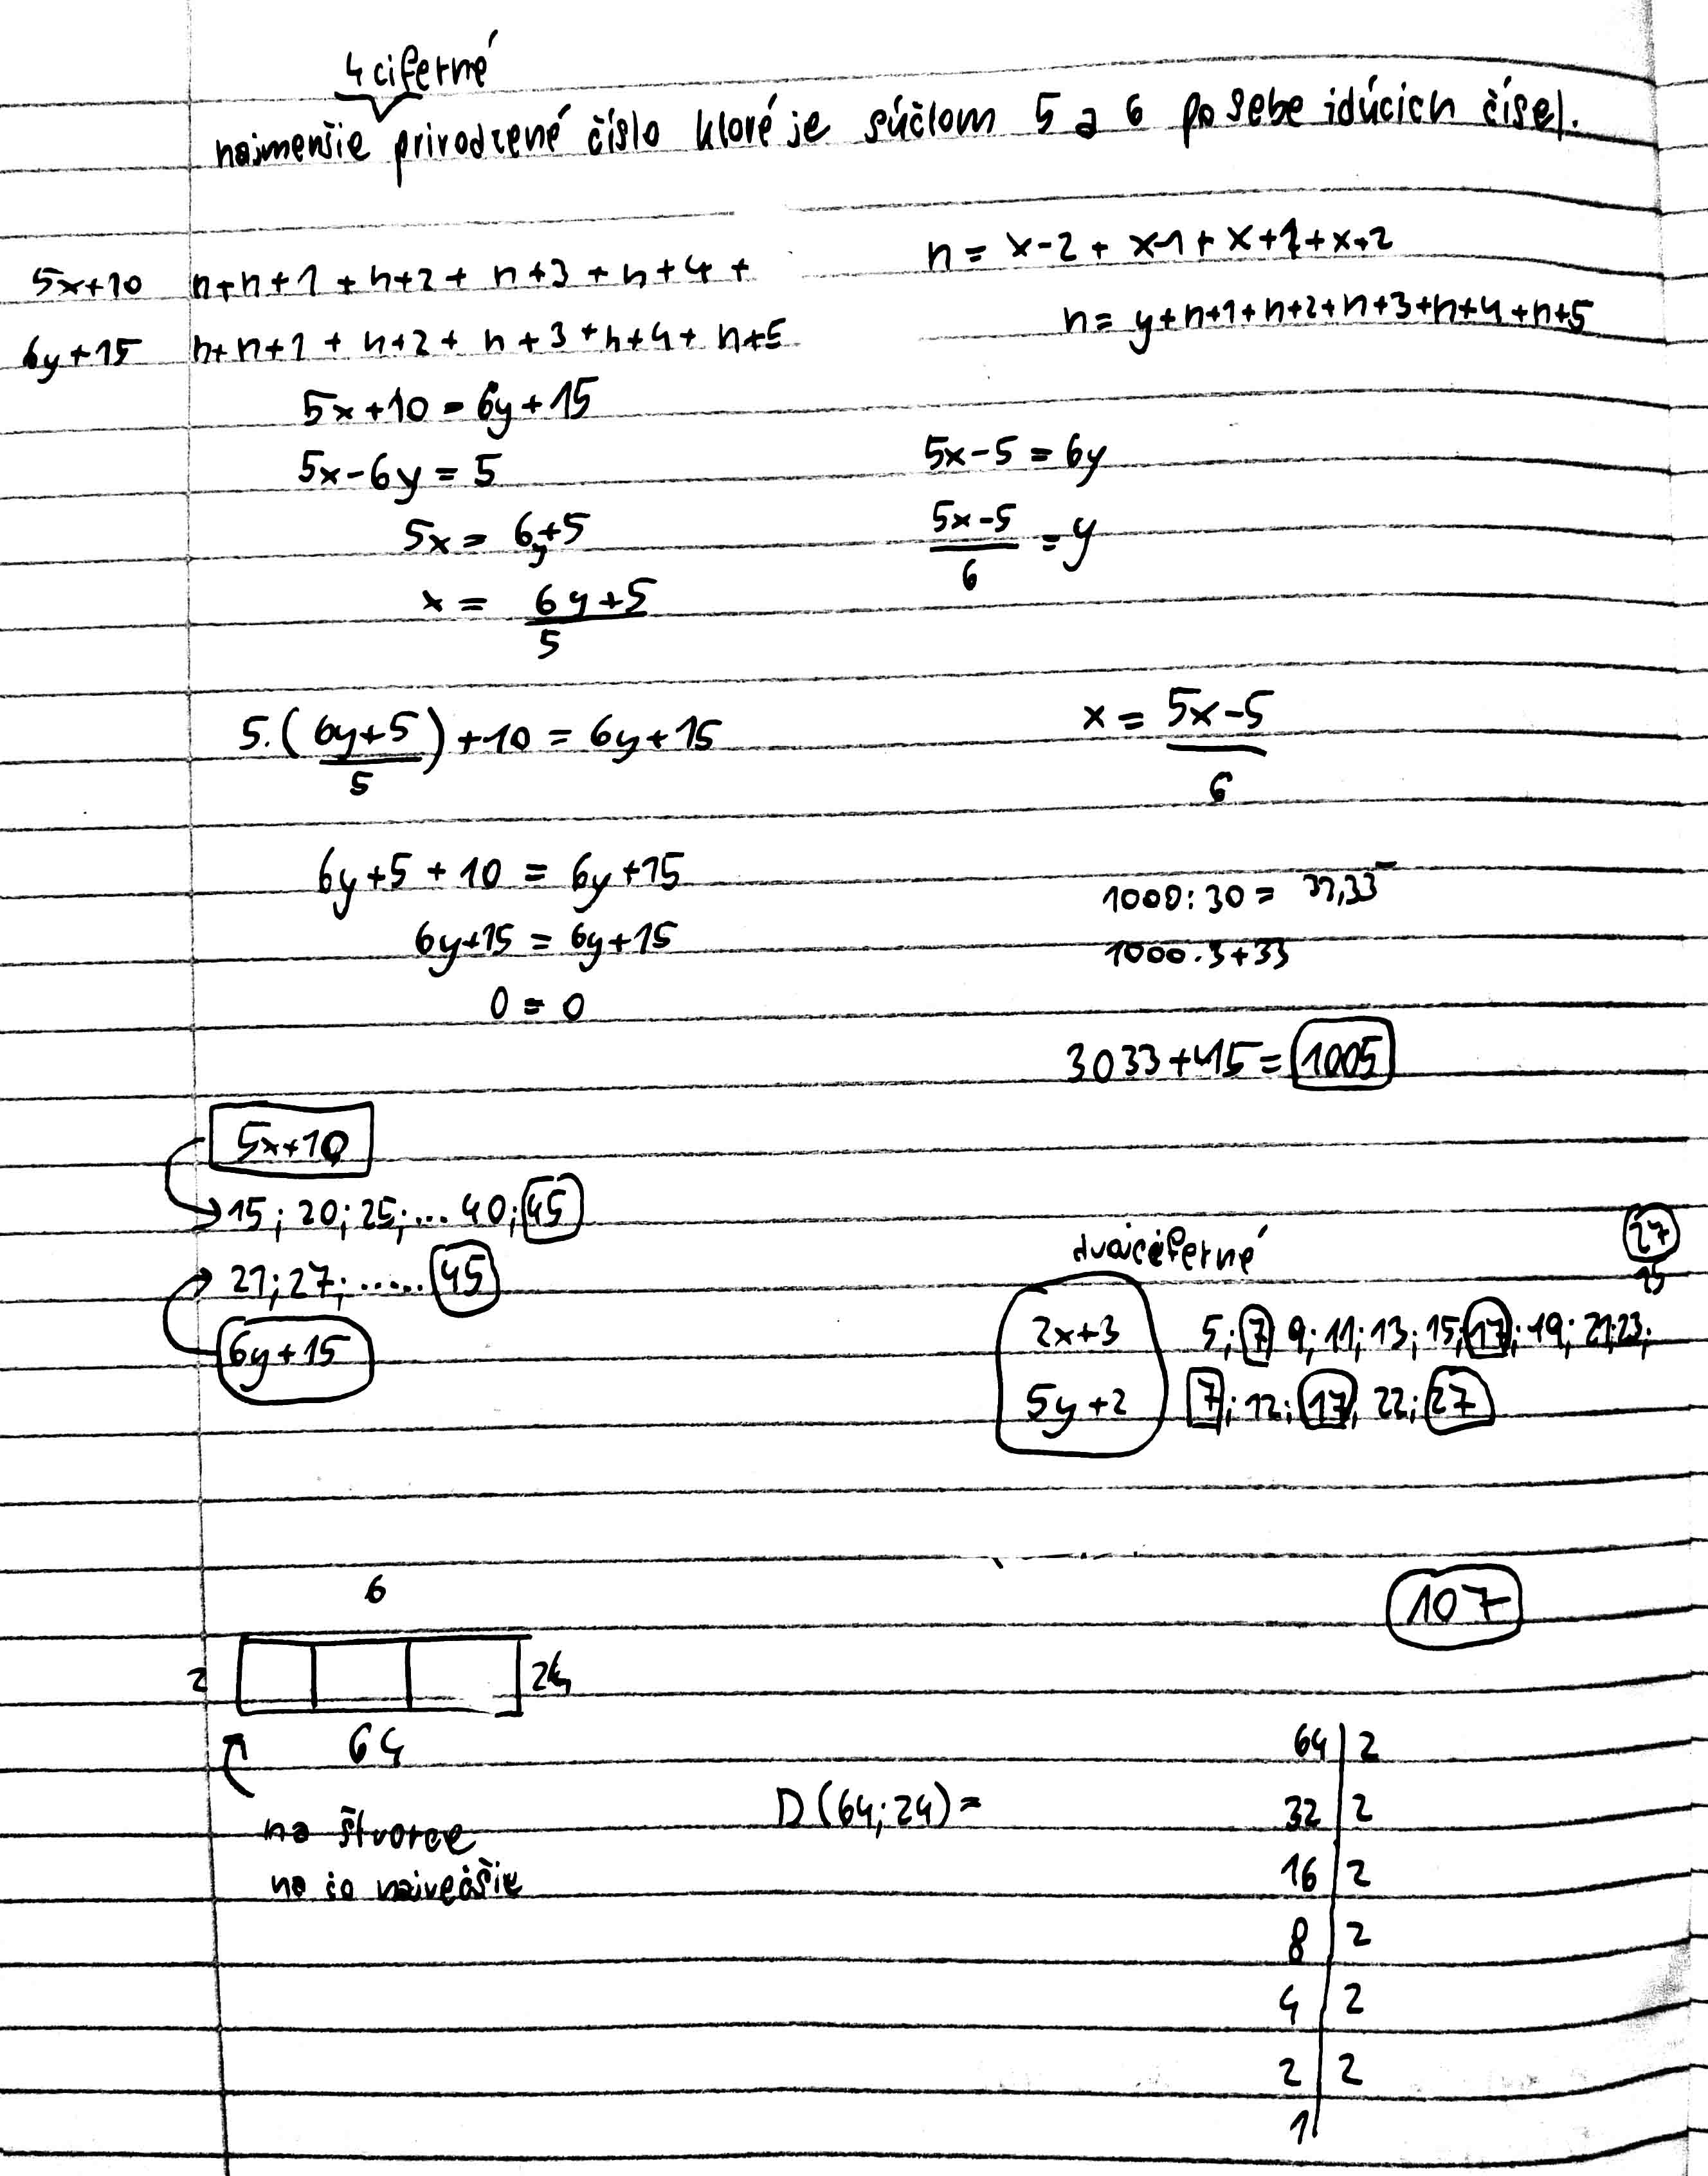 4 ciferné
najmenšie prirodzené číslo ktoré je súčtom 5 a 6 po sebe idúcich čísel.
5x+10 n+n+1+n+2+n+3+n+4+
6y+15 n+n+1+n+2+n+3+n+4+n+5
n=x-2+x-1+x+1+x+2
n=y+n+1+n+2+n+3+n+4+n+5
5x+10=6y+15
5x-6y=5
5x=6y+5
x=6y+5/5
5x-5=6y
5x-5/6=y
5.(6y+5/5)+10=6y+15
x=5x-5/6
6y+5+10=6y+15
6y+15=6y+15
0=0
1000:30=33,33
1000.3+33
3033+45=1005
5x+10
15; 20; 25;... 40; 45
21; 27; ...... 45
6y+15
dvojciferné
27
2x+3 5; 7; 9; 11; 13; 15; 17; 19; 21; 23;
5y+2 7; 12; 17; 22; 27
107
6
2 24
64
na štvorce
na čo najväčšie
D(64;24)=
64|2
32|2
16|2
8|2
4|2
2|2
1|